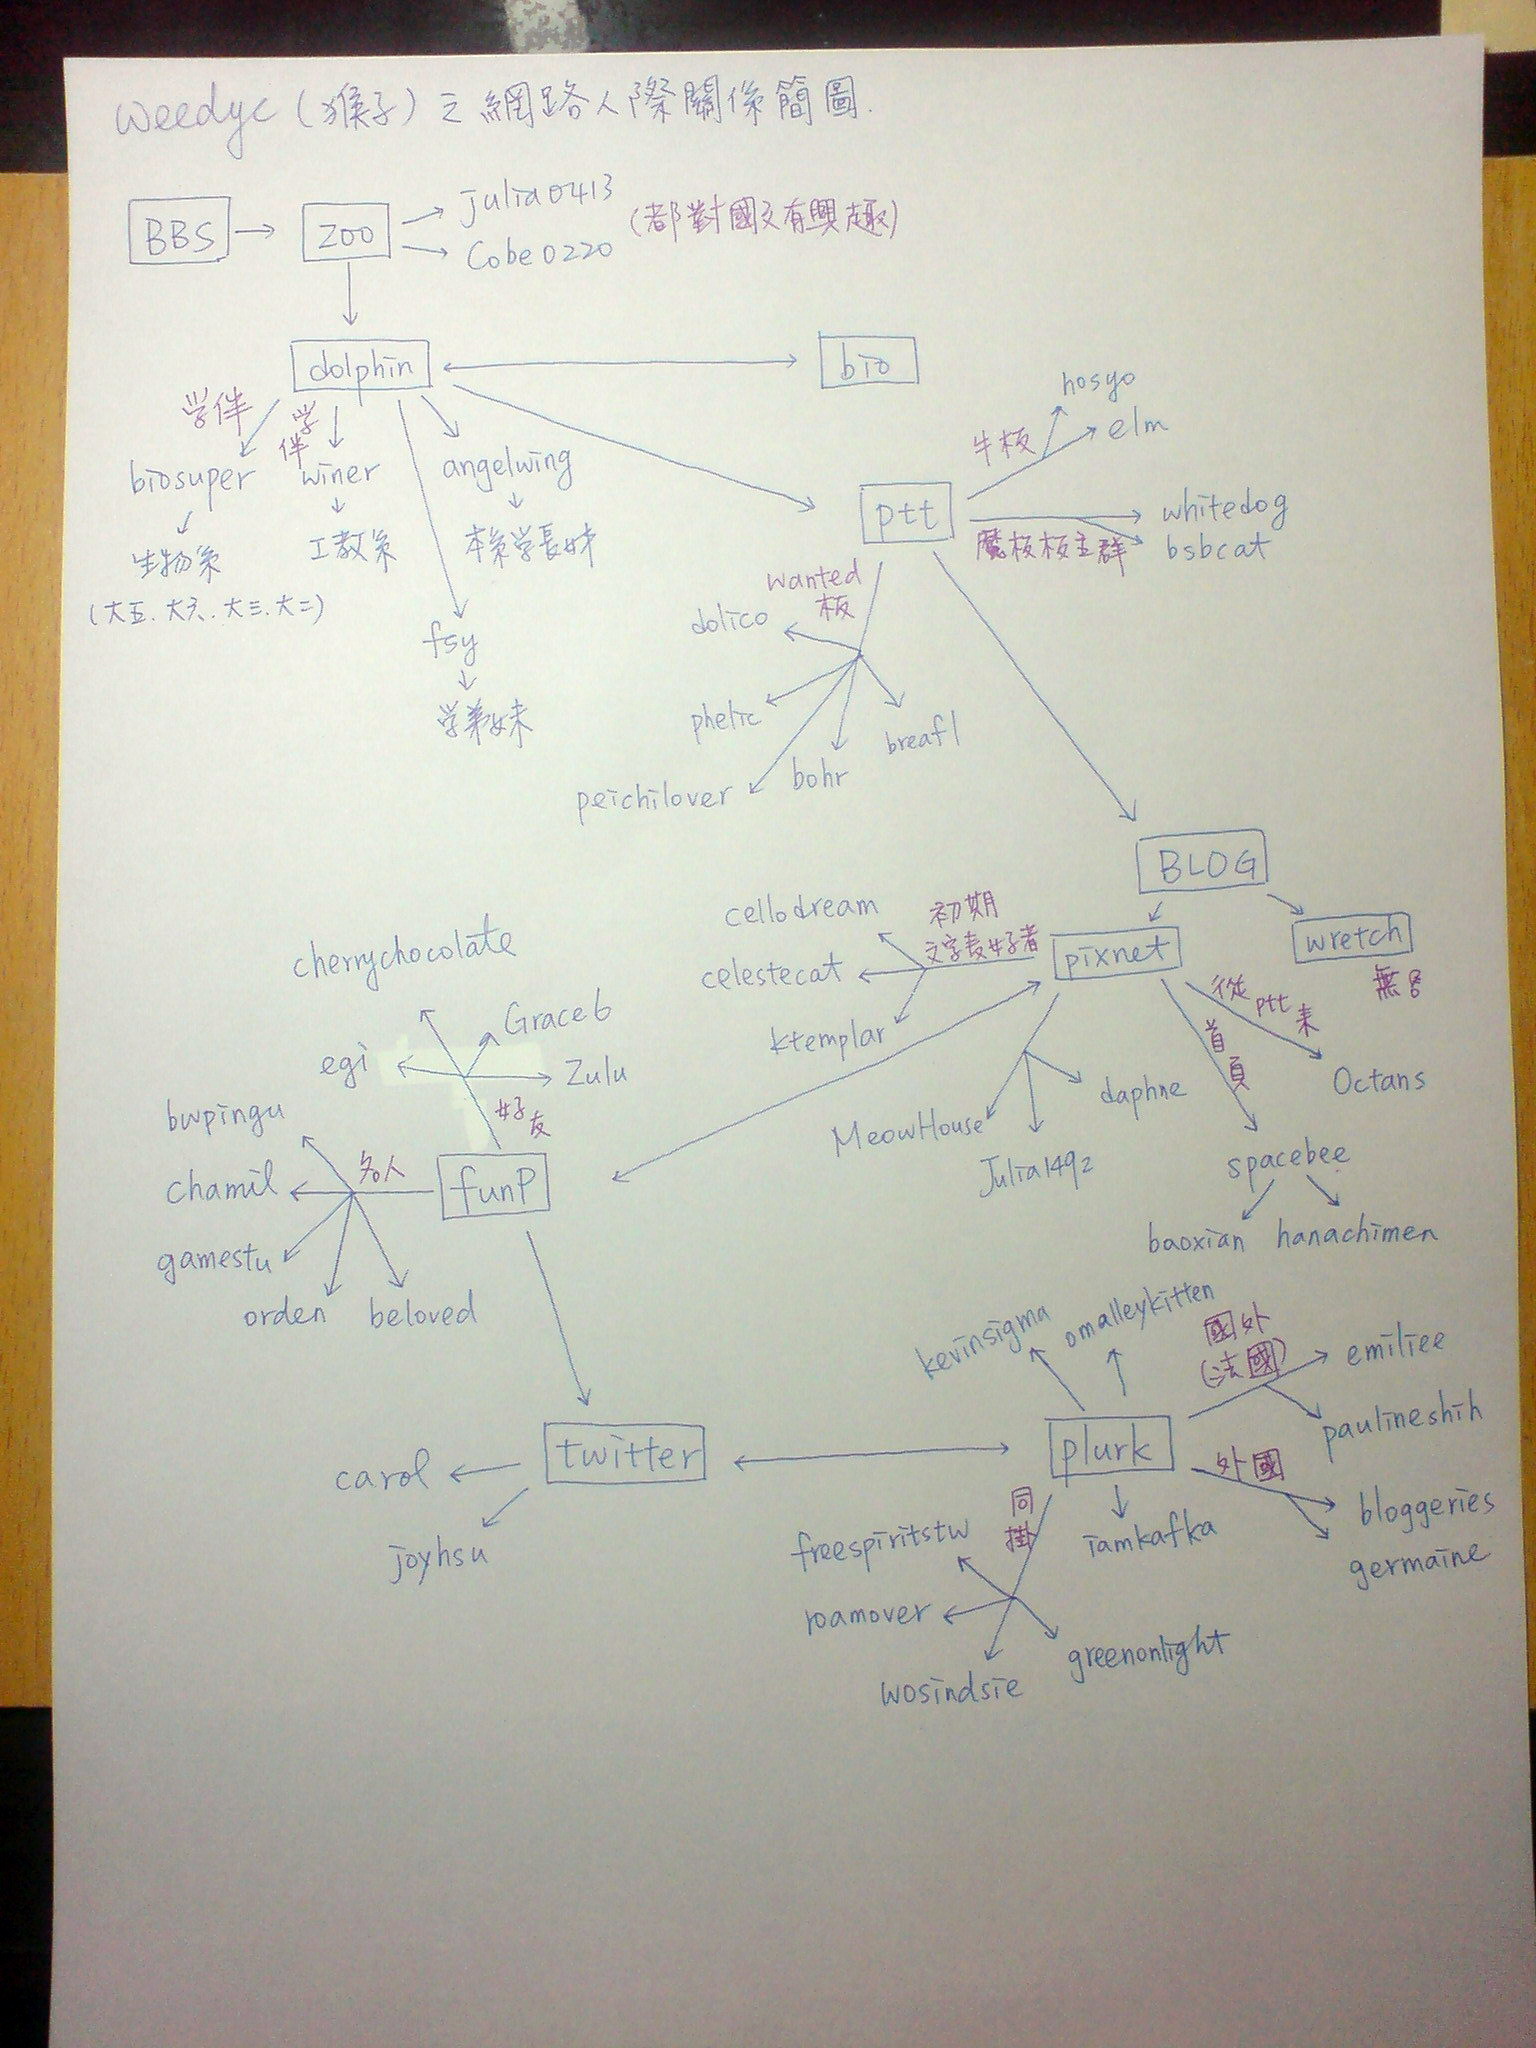 weedyc (猴子) 之網路人際關係簡圖.
BBS
zoo
julia0413
Cobe0220
(都對國文有興趣)
dolphin
bio
学伴
学伴
biosuper
winer
angelwing
生物系
工教系
本系学長妹
(大五.大六.大三.大二)
fsy
学弟妹
hosyo
牛板
elm
ptt
whitedog
魔板板主群
bsbcat
wanted
板
dolico
phelic
breafl
bohr
peichilover
BLOG
pixnet
wretch
無名
cellodream
初期
文字表好者
celestecat
ktemplar
從ptt来
首頁
Octans
daphne
MeowHouse
Julia1492
spacebee
baoxian
hanachimen
cherrychocolate
Grace6
egi
Zulu
好友
bwpingu
名人
chamil
funP
gamestu
orden
beloved
kevinsigma
omalleykitten
國外
(法國)
emiliee
paulineshih
twitter
plurk
外國
carol
joyhsu
bloggeries
germaine
同掛
iamkafka
freespiritstw
roamover
wosindsie
greenonlight